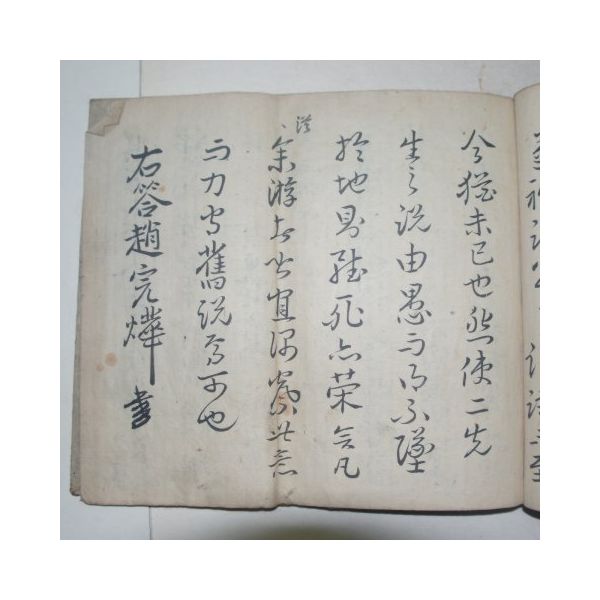 今猶未已也然使二先
生之說由愚而得不墜
於地則雖死亦榮矣凡
從
余游者皆宜深察此意
而力守舊說爲可也
右答趙完燁書